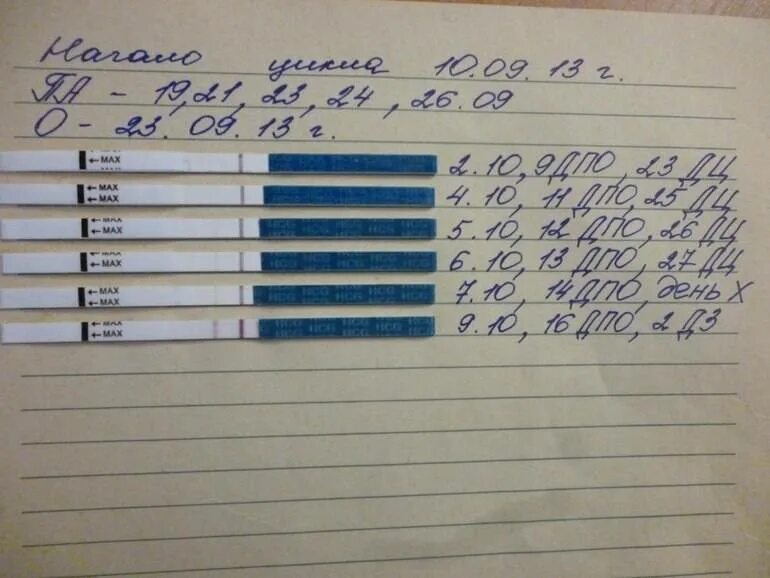 Начало цикла 10.09.13 г.
ПА - 19, 21, 23, 24, 26.09
О - 23.09.13 г.
←MAX 2.10, 9 ДПО, 23 ДЦ
←MAX
←MAX 4.10, 11 ДПО, 25 ДЦ
←MAX
←MAX HCG HCG HCG HCG 5.10, 12 ДПО, 26 ДЦ
←MAX HCG HCG HCG 6.10, 13 ДПО, 27 ДЦ
←MAX
←MAX HCG HCG HCG 7.10, 14 ДПО, день X
←MAX
←MAX HCG HCG HCG HCG 9.10, 16 ДПО, 2 ДЗ